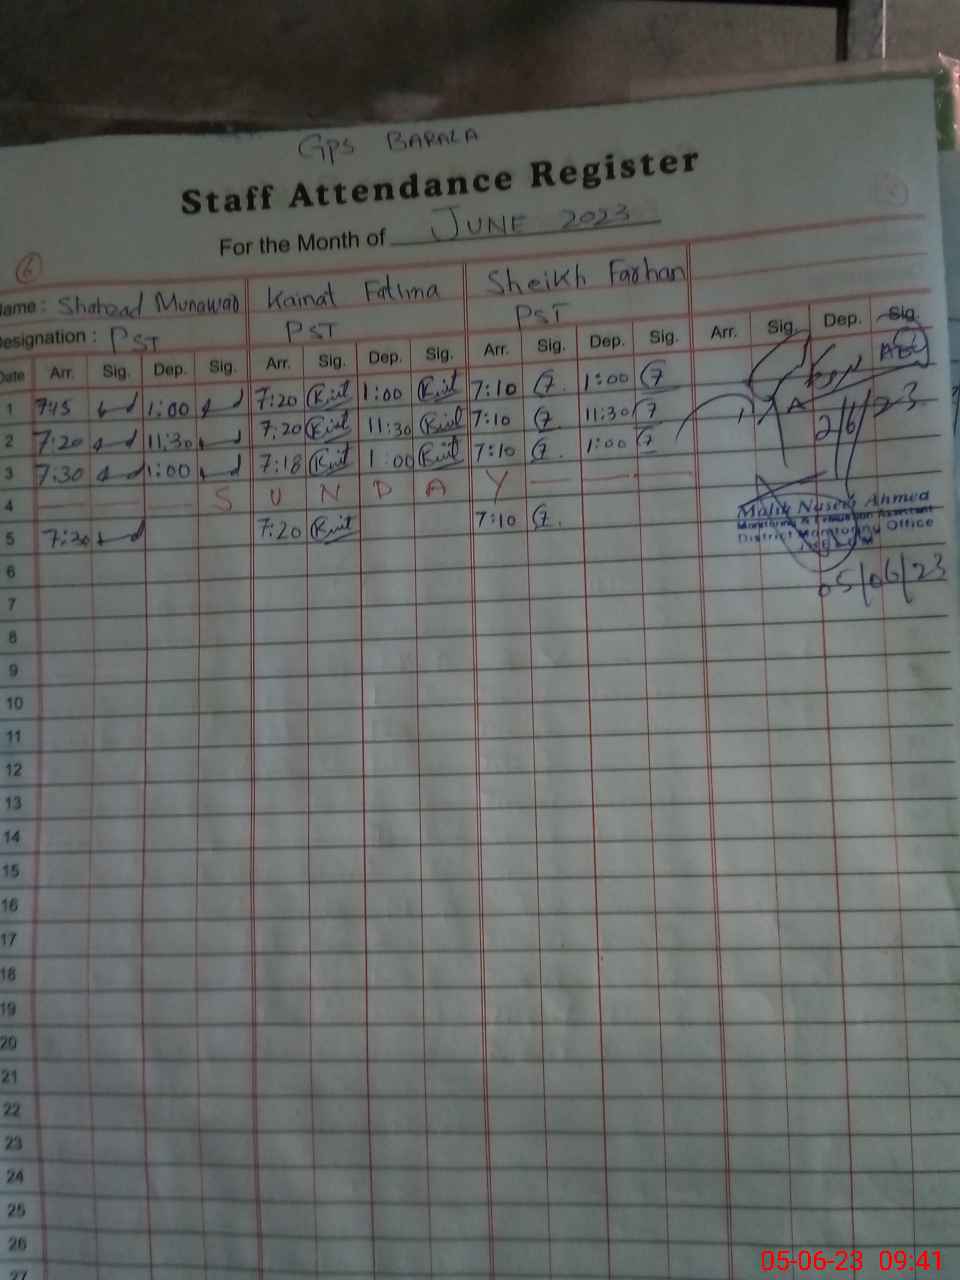 GPS BARALA
Staff Attendance Register
For the Month of JUNE 2023
6
Name : Shahzad Munawar Kainat Fatima Sheikh Farhan
Designation : PST PST PST
Date Arr. Sig. Dep. Sig. Arr. Sig. Dep. Sig. Arr. Sig. Dep. Sig. Arr. Sig. Dep. Sig.
1 7:45 1:00 7:20 1:00 7:10 1:00
2 7:20 11:30 7:20 11:30 7:10 11:30 2/6/23
3 7:30 1:00 7:18 1:00 7:10 1:00
4 S U N D A Y
Malik Naseer Ahmed
Monitoring & Evaluation Assistant
District Monitoring Office
5 7:30 7:20 7:10
05/06/23
6
7
8
9
10
11
12
13
14
15
16
17
18
19
20
21
22
23
24
25
26
27
05-06-23 09:41